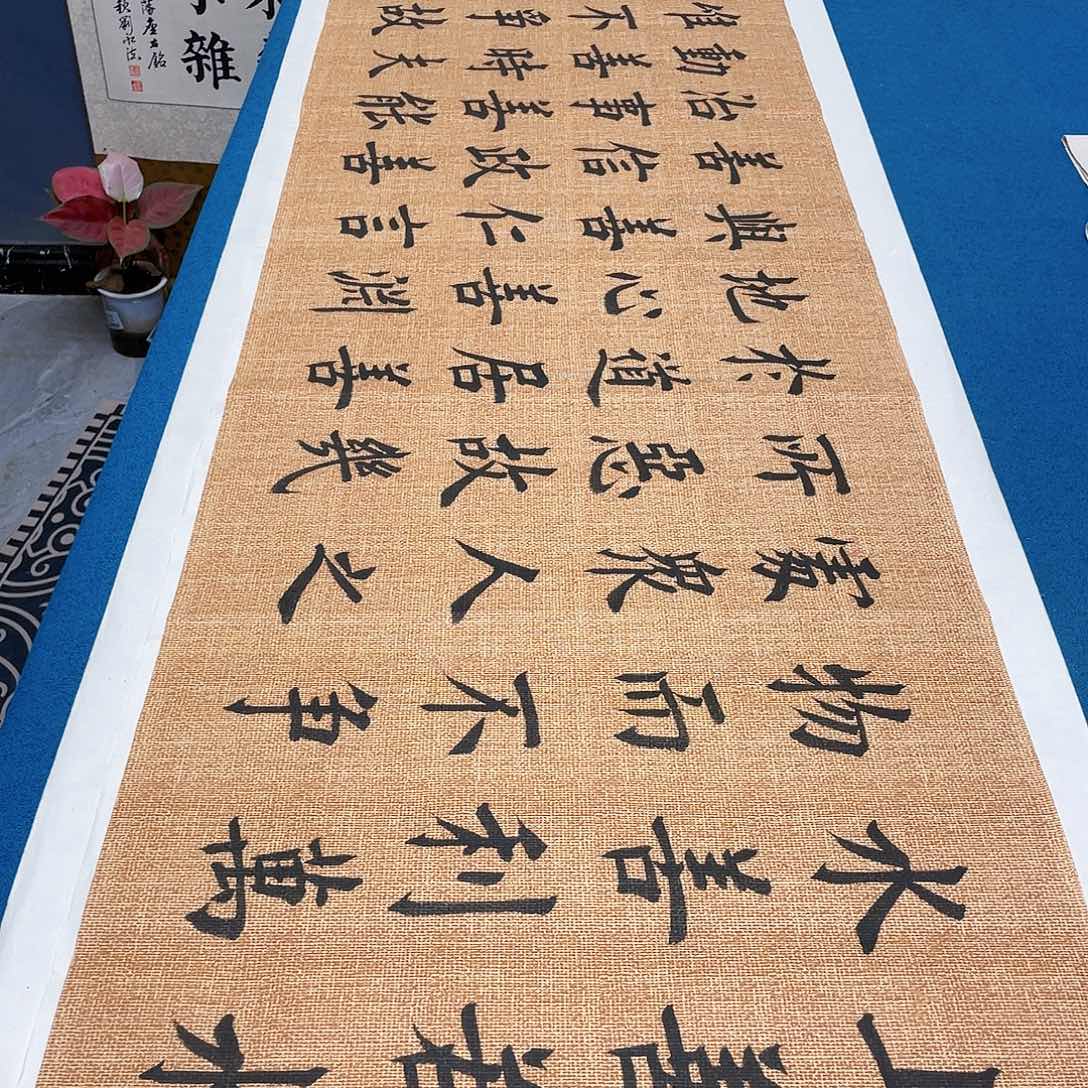 上善若水
水善利萬
物而不爭
處衆人之
所惡故幾
於道居善
地心善淵
與善仁言
善信政善
治事善能
動善時夫
不爭故
雜